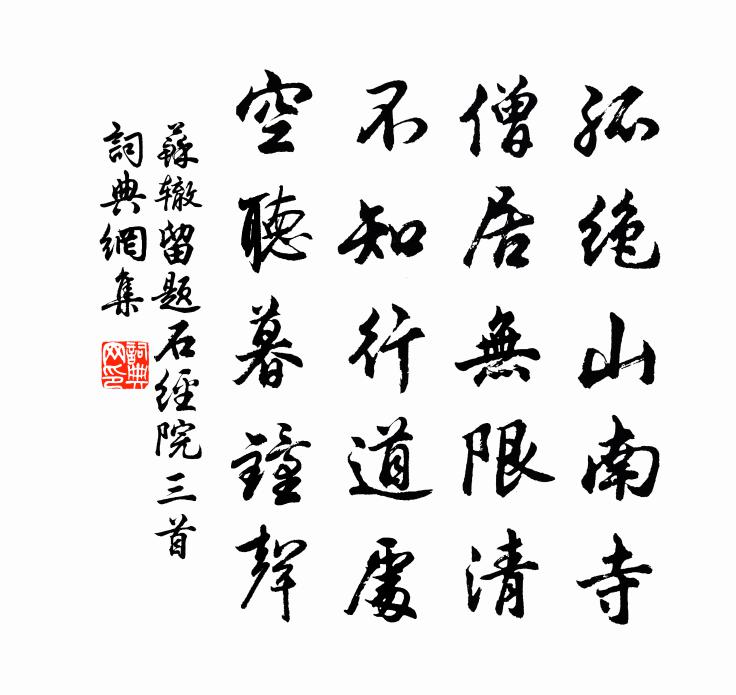 孤絶山南寺
僧居無限清
不知行道處
空聽暮鐘聲
蘇辙留題石經院三首
詞典網集
詞典网印